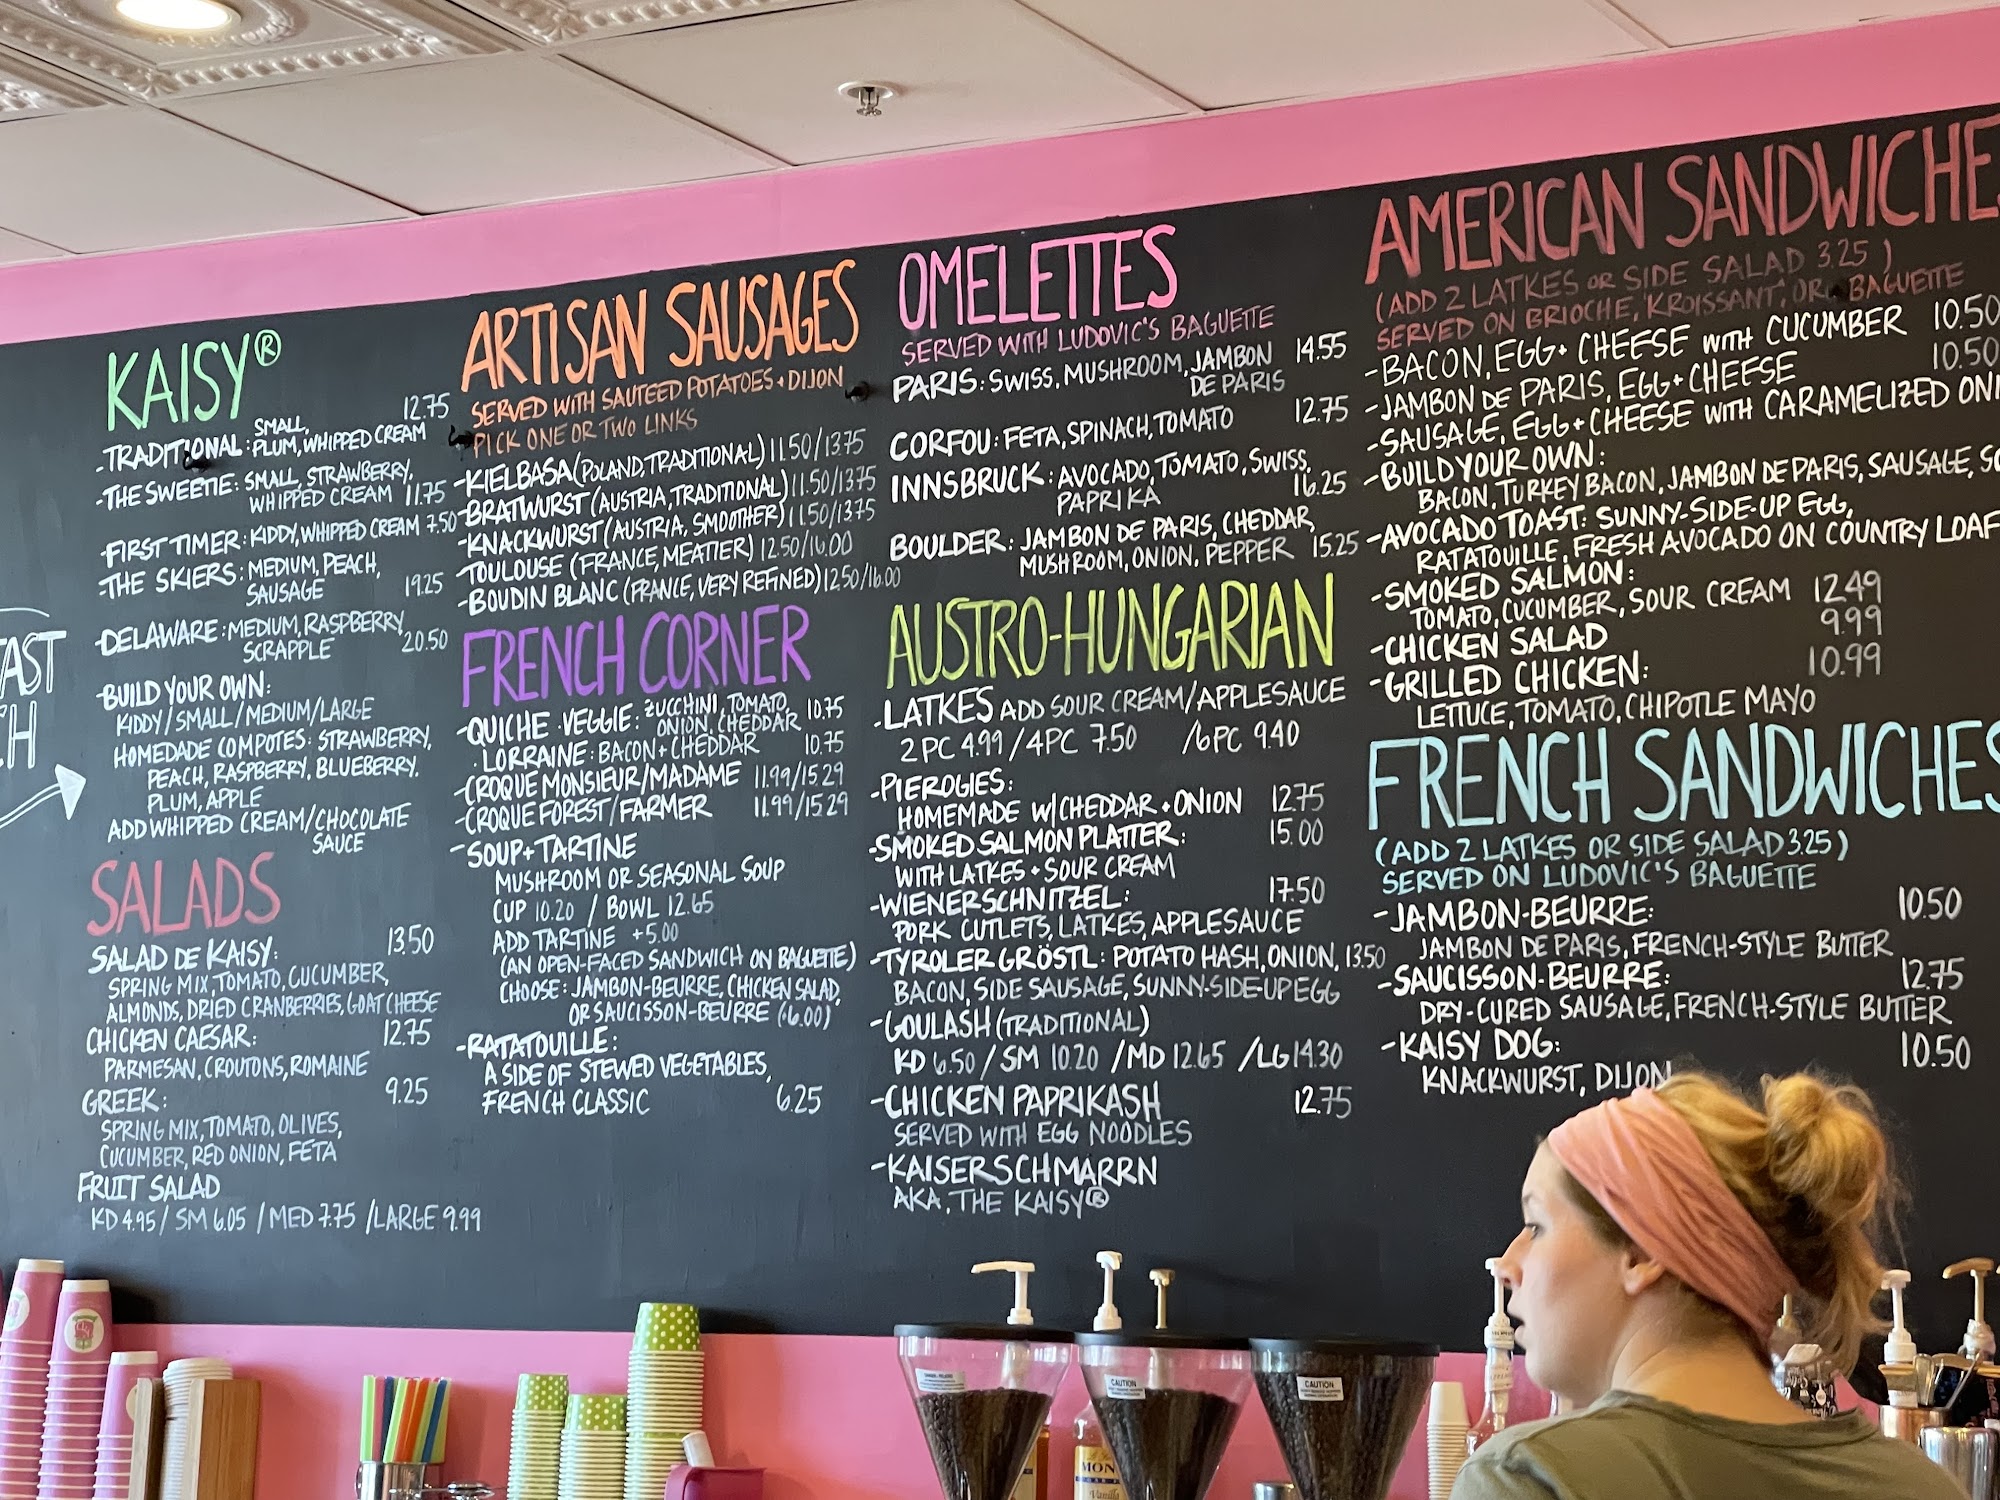 KAISY®
-TRADITIONAL: SMALL, PLUM, WHIPPED CREAM 12.75
-THE SWEETIE: SMALL, STRAWBERRY,
WHIPPED CREAM 11.75
-FIRST TIMER: KIDDY, WHIPPED CREAM 7.50
-THE SKIERS: MEDIUM, PEACH,
SAUSAGE 19.25
-DELAWARE: MEDIUM, RASPBERRY,
SCRAPPLE 20.50
-BUILD YOUR OWN:
KIDDY/SMALL/MEDIUM/LARGE
HOMEDADE COMPOTES: STRAWBERRY,
PEACH, RASPBERRY, BLUEBERRY,
PLUM, APPLE
ADD WHIPPED CREAM/CHOCOLATE
SAUCE
SALADS
SALAD DE KAISY: 13.50
SPRING MIX, TOMATO, CUCUMBER,
ALMONDS, DRIED CRANBERRIES, GOAT CHEESE
CHICKEN CAESAR: 12.75
PARMESAN, CROUTONS, ROMAINE
GREEK: 9.25
SPRING MIX, TOMATO, OLIVES,
CUCUMBER, RED ONION, FETA
FRUIT SALAD
KD 4.95/ SM 6.05 /MED 7.75 /LARGE 9.99
ARTISAN SAUSAGES
SERVED WITH SAUTEED POTATOES + DIJON
PICK ONE OR TWO LINKS
-KIELBASA (POLAND, TRADITIONAL) 11.50/13.75
-BRATWURST (AUSTRIA, TRADITIONAL) 11.50/13.75
-KNACKWURST (AUSTRIA, SMOOTHER) 11.50/13.75
-TOULOUSE (FRANCE, MEATIER) 12.50/16.00
-BOUDIN BLANC (FRANCE, VERY REFINED) 12.50/16.00
FRENCH CORNER
-QUICHE · VEGGIE: ZUCCHINI, TOMATO, 10.75
ONION, CHEDDAR
· LORRAINE: BACON + CHEDDAR 10.75
-CROQUE MONSIEUR/MADAME 11.99/15.29
-CROQUE FOREST/FARMER 11.99/15.29
-SOUP + TARTINE
MUSHROOM OR SEASONAL SOUP
CUP 10.20 / BOWL 12.65
ADD TARTINE +5.00
(AN OPEN-FACED SANDWICH ON BAGUETTE)
CHOOSE: JAMBON-BEURRE, CHICKEN SALAD,
OR SAUCISSON-BEURRE (+6.00)
-RATATOUILLE:
A SIDE OF STEWED VEGETABLES,
FRENCH CLASSIC 6.25
OMELETTES
SERVED WITH LUDOVIC'S BAGUETTE
PARIS: SWISS, MUSHROOM, JAMBON 14.55
DE PARIS
CORFOU: FETA, SPINACH, TOMATO 12.75
INNSBRUCK: AVOCADO, TOMATO, SWISS,
PAPRIKA 16.25
BOULDER: JAMBON DE PARIS, CHEDDAR,
MUSHROOM, ONION, PEPPER 15.25
AUSTRO-HUNGARIAN
-LATKES ADD SOUR CREAM/APPLESAUCE
2 PC 4.99 / 4PC 7.50 /6PC 9.40
-PIEROGIES:
HOMEMADE W/CHEDDAR + ONION 12.75
-SMOKED SALMON PLATTER: 15.00
WITH LATKES + SOUR CREAM
-WIENERSCHNITZEL: 17.50
PORK CUTLETS, LATKES, APPLESAUCE
-TYROLER GRÖSTL: POTATO HASH, ONION, 13.50
BACON, SIDE SAUSAGE, SUNNY-SIDE-UP EGG
-GOULASH (TRADITIONAL)
KD 6.50 / SM 10.20 /MD 12.65 /LG 14.30
-CHICKEN PAPRIKASH 12.75
SERVED WITH EGG NOODLES
-KAISERSCHMARRN
AKA, THE KAISY®
AMERICAN SANDWICHE
(ADD 2 LATKES OR SIDE SALAD 3.25)
SERVED ON BRIOCHE, KROISSANT, OR BAGUETTE
-BACON, EGG + CHEESE WITH CUCUMBER 10.50
-JAMBON DE PARIS, EGG + CHEESE 10.50
-SAUSAGE, EGG + CHEESE WITH CARAMELIZED ONI
-BUILD YOUR OWN:
BACON, TURKEY BACON, JAMBON DE PARIS, SAUSAGE,
-AVOCADO TOAST: SUNNY-SIDE-UP EGG,
RATATOUILLE, FRESH AVOCADO ON COUNTRY LOAF
-SMOKED SALMON:
TOMATO, CUCUMBER, SOUR CREAM 12.49
-CHICKEN SALAD 9.99
-GRILLED CHICKEN: 10.99
LETTUCE, TOMATO, CHIPOTLE MAYO
FRENCH SANDWICHES
(ADD 2 LATKES OR SIDE SALAD 3.25)
SERVED ON LUDOVIC'S BAGUETTE
-JAMBON-BEURRE: 10.50
JAMBON DE PARIS, FRENCH-STYLE BUTTER
-SAUCISSON-BEURRE: 12.75
DRY-CURED SAUSAGE, FRENCH-STYLE BUTTER
-KAISY DOG: 10.50
KNACKWURST, DIJON
CAUTION
CAUTION
MON
Vanilla